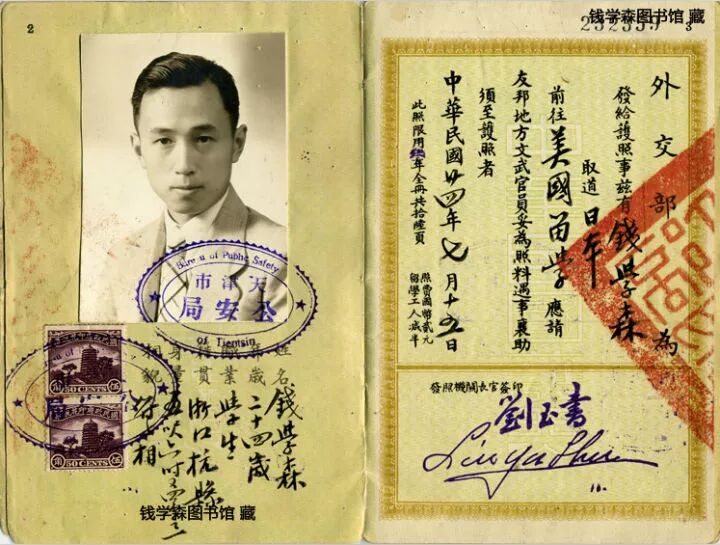 2
Bureau of Public Safety
天津市
公安局
of Tientsin
50 CENTS
50 CENTS
姓名 錢學森
年歲 二十四歲
職業 學生
籍貫 浙江杭縣
身量 五呎六吋又四分之一
相貌
钱学森图书馆 藏
钱学森图书馆 藏
3
外交部 為
發給護照事茲有 錢學森
取道 日本
前往 美國留學 應請
友邦地方文武官員妥為照料遇事襄助
須至護照者
中華民國廿四年七月十五日
此照限用叁年全冊共拾陸頁
照費國幣貳元
留學工人減半
發照機關長官簽印
劉玉書
Liu Yu Shu